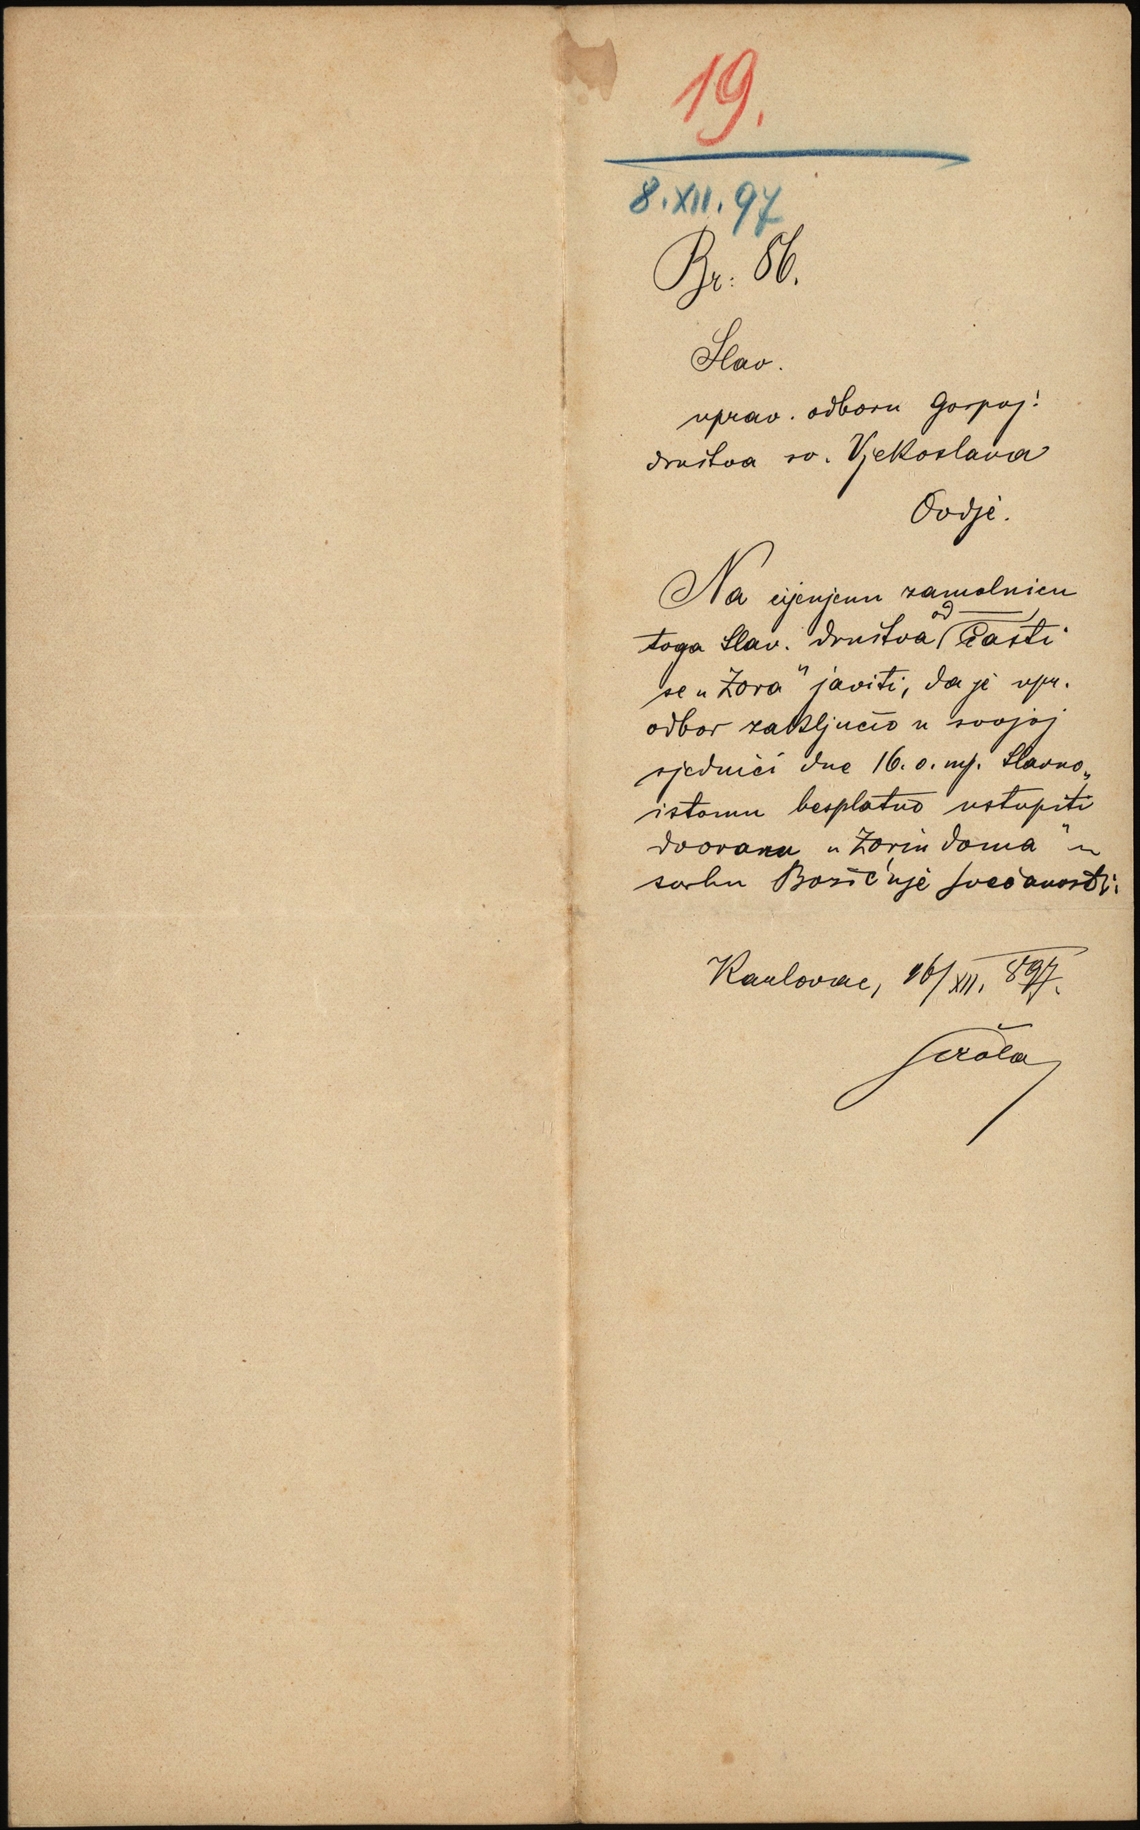 19.
8.XII.97
Br: 86.
Slav.
uprav. odboru Gospoj:
društva sv. Vjekoslava
Ovdje.
Na cijenjenu zamolnicu
toga Slav. društva od časti
se „Zora" javiti, da je upr.
odbor zaključio u svojoj
sjednici dne 16. o. mj. Slavno„
istomu besplatno ustupiti
dvoranu „Zorin doma" u
svrhu Božićnje svečanosti.
Karlovac, 16/XII. 897.